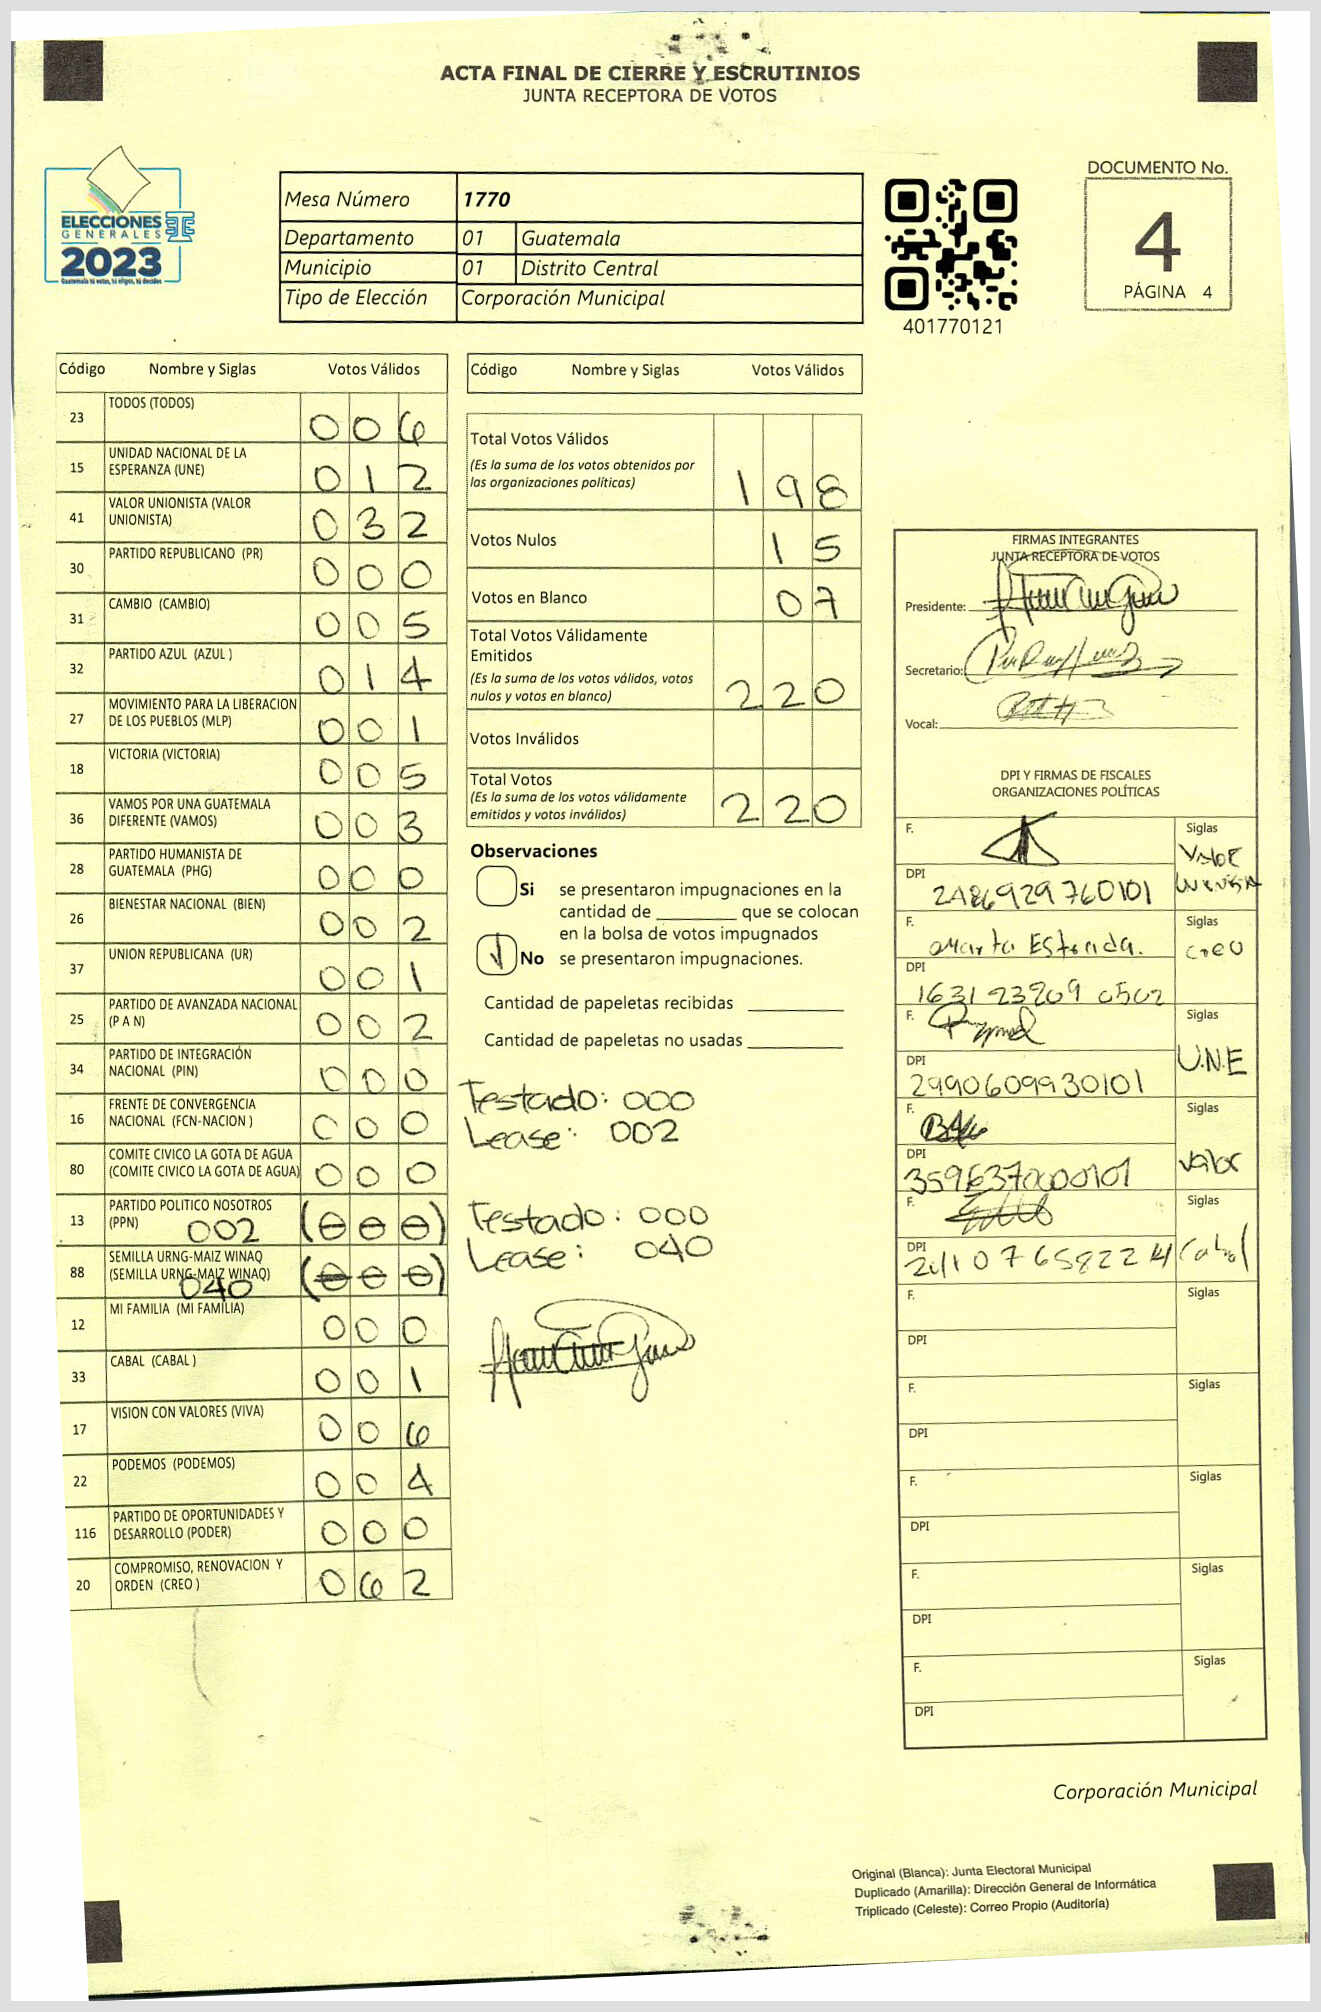 ACTA FINAL DE CIERRE Y ESCRUTINIOS
JUNTA RECEPTORA DE VOTOS
ELECCIONES
GENERALES
2023
Guatemala tú votas, tú eliges, tú decides
Mesa Número 1770
Departamento 01 Guatemala
Municipio 01 Distrito Central
Tipo de Elección Corporación Municipal
401770121
DOCUMENTO No.
4
PÁGINA 4
Código Nombre y Siglas Votos Válidos
23 TODOS (TODOS) 0 0 6
15 UNIDAD NACIONAL DE LA ESPERANZA (UNE) 0 1 2
41 VALOR UNIONISTA (VALOR UNIONISTA) 0 3 2
30 PARTIDO REPUBLICANO (PR) 0 0 0
31 CAMBIO (CAMBIO) 0 0 5
32 PARTIDO AZUL (AZUL ) 0 1 4
27 MOVIMIENTO PARA LA LIBERACION DE LOS PUEBLOS (MLP) 0 0 1
18 VICTORIA (VICTORIA) 0 0 5
36 VAMOS POR UNA GUATEMALA DIFERENTE (VAMOS) 0 0 3
28 PARTIDO HUMANISTA DE GUATEMALA (PHG) 0 0 0
26 BIENESTAR NACIONAL (BIEN) 0 0 2
37 UNION REPUBLICANA (UR) 0 0 1
25 PARTIDO DE AVANZADA NACIONAL (P A N) 0 0 2
34 PARTIDO DE INTEGRACIÓN NACIONAL (PIN) 0 0 0
16 FRENTE DE CONVERGENCIA NACIONAL (FCN-NACION ) 0 0 0
80 COMITE CIVICO LA GOTA DE AGUA (COMITE CIVICO LA GOTA DE AGUA) 0 0 0
13 PARTIDO POLITICO NOSOTROS (PPN) 002 (0 0 0)
88 SEMILLA URNG-MAIZ WINAQ (SEMILLA URNG-MAIZ WINAQ) 040 (0 0 0)
12 MI FAMILIA (MI FAMILIA) 0 0 0
33 CABAL (CABAL ) 0 0 1
17 VISION CON VALORES (VIVA) 0 0 6
22 PODEMOS (PODEMOS) 0 0 4
116 PARTIDO DE OPORTUNIDADES Y DESARROLLO (PODER) 0 0 0
20 COMPROMISO, RENOVACION Y ORDEN (CREO ) 0 6 2
Código Nombre y Siglas Votos Válidos
Total Votos Válidos 1 9 8
(Es la suma de los votos obtenidos por
las organizaciones políticas)
Votos Nulos 1 5
Votos en Blanco 0 7
Total Votos Válidamente
Emitidos
(Es la suma de los votos válidos, votos
nulos y votos en blanco) 2 2 0
Votos Inválidos
Total Votos
(Es la suma de los votos válidamente
emitidos y votos inválidos) 2 2 0
Observaciones
Si se presentaron impugnaciones en la
cantidad de ________ que se colocan
en la bolsa de votos impugnados
No se presentaron impugnaciones.
Cantidad de papeletas recibidas
Cantidad de papeletas no usadas
Testado: 000
Lease: 002
Testado: 000
Lease: 040
FIRMAS INTEGRANTES
JUNTA RECEPTORA DE VOTOS
Presidente:
Secretario:
Vocal:
DPI Y FIRMAS DE FISCALES
ORGANIZACIONES POLÍTICAS
F. Siglas
Valor
DPI
F. Marta Estrada. Siglas
Creo
DPI 1631 23209 0502
F. Siglas
U.N.E
DPI 2990609930101
F. Siglas
Valor
DPI
F. Siglas
Cabal
DPI
F. Siglas
DPI
F. Siglas
DPI
F. Siglas
DPI
F. Siglas
DPI
F. Siglas
DPI
Corporación Municipal
Original (Blanca): Junta Electoral Municipal
Duplicado (Amarilla): Dirección General de Informática
Triplicado (Celeste): Correo Propio (Auditoría)